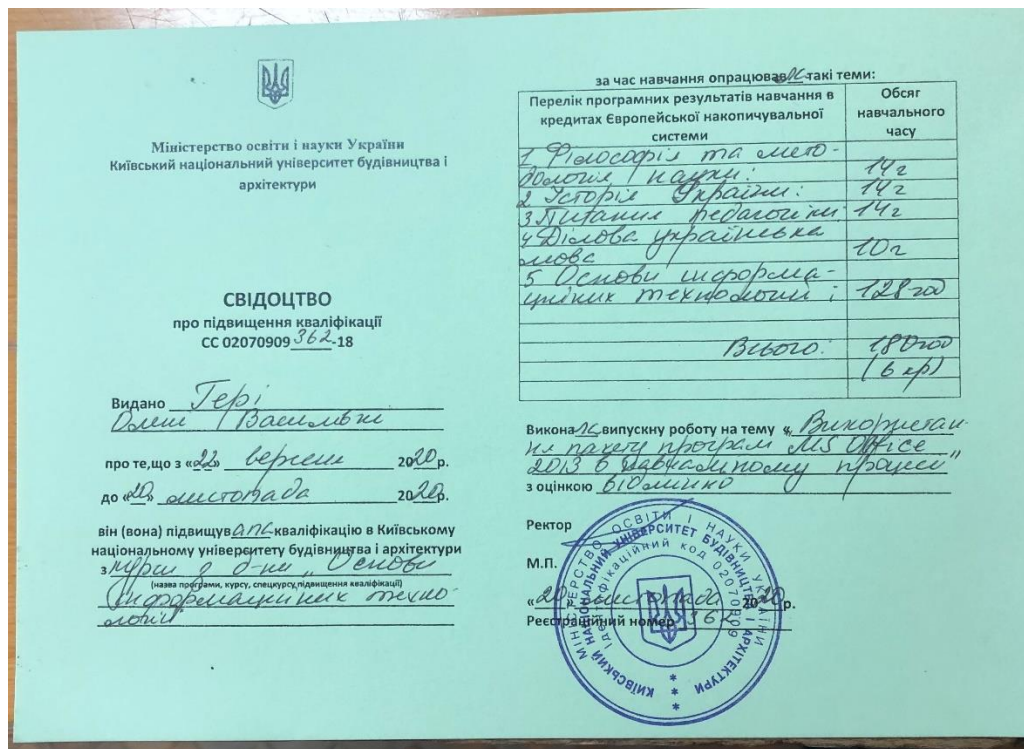 Міністерство освіти і науки України
Київський національний університет будівництва і
архітектури
СВІДОЦТВО
про підвищення кваліфікації
СС 02070909 362 -18
Видано Гері
Олені Василівні
про те,що з «22» вересня 2020р.
до «20» листопада 2020р.
він (вона) підвищувала кваліфікацію в Київському
національному університету будівництва і архітектури
з курси з "Основи
(назва програми, курсу, спецкурсу,підвищення кваліфікації)
інформаційних техно-
логій"
за час навчання опрацювала такі теми:
Перелік програмних результатів навчання в
кредитах Європейської накопичувальної
системи
Обсяг
навчального
часу
1 Філософія та мето-
дологія науки: 14г
2 Історія України: 14г
3 Питання педагогіки: 14г
4 Ділова українська
мова 10г
5 Основи інформа-
ційних технологій; 128год
Всього: 180год
(6 кр)
Виконала випускну роботу на тему „ Використан-
ня пакету програм MS Office
2013 в навчальному процесі"
з оцінкою відмінно
Ректор
М.П.
«20» листопада 2020р.
Реєстраційний номер 362
МІНІСТЕРСТВО ОСВІТИ І НАУКИ УКРАЇНИ
КИЇВСЬКИЙ НАЦІОНАЛЬНИЙ УНІВЕРСИТЕТ БУДІВНИЦТВА І АРХІТЕКТУРИ
Ідентифікаційний код 02070909